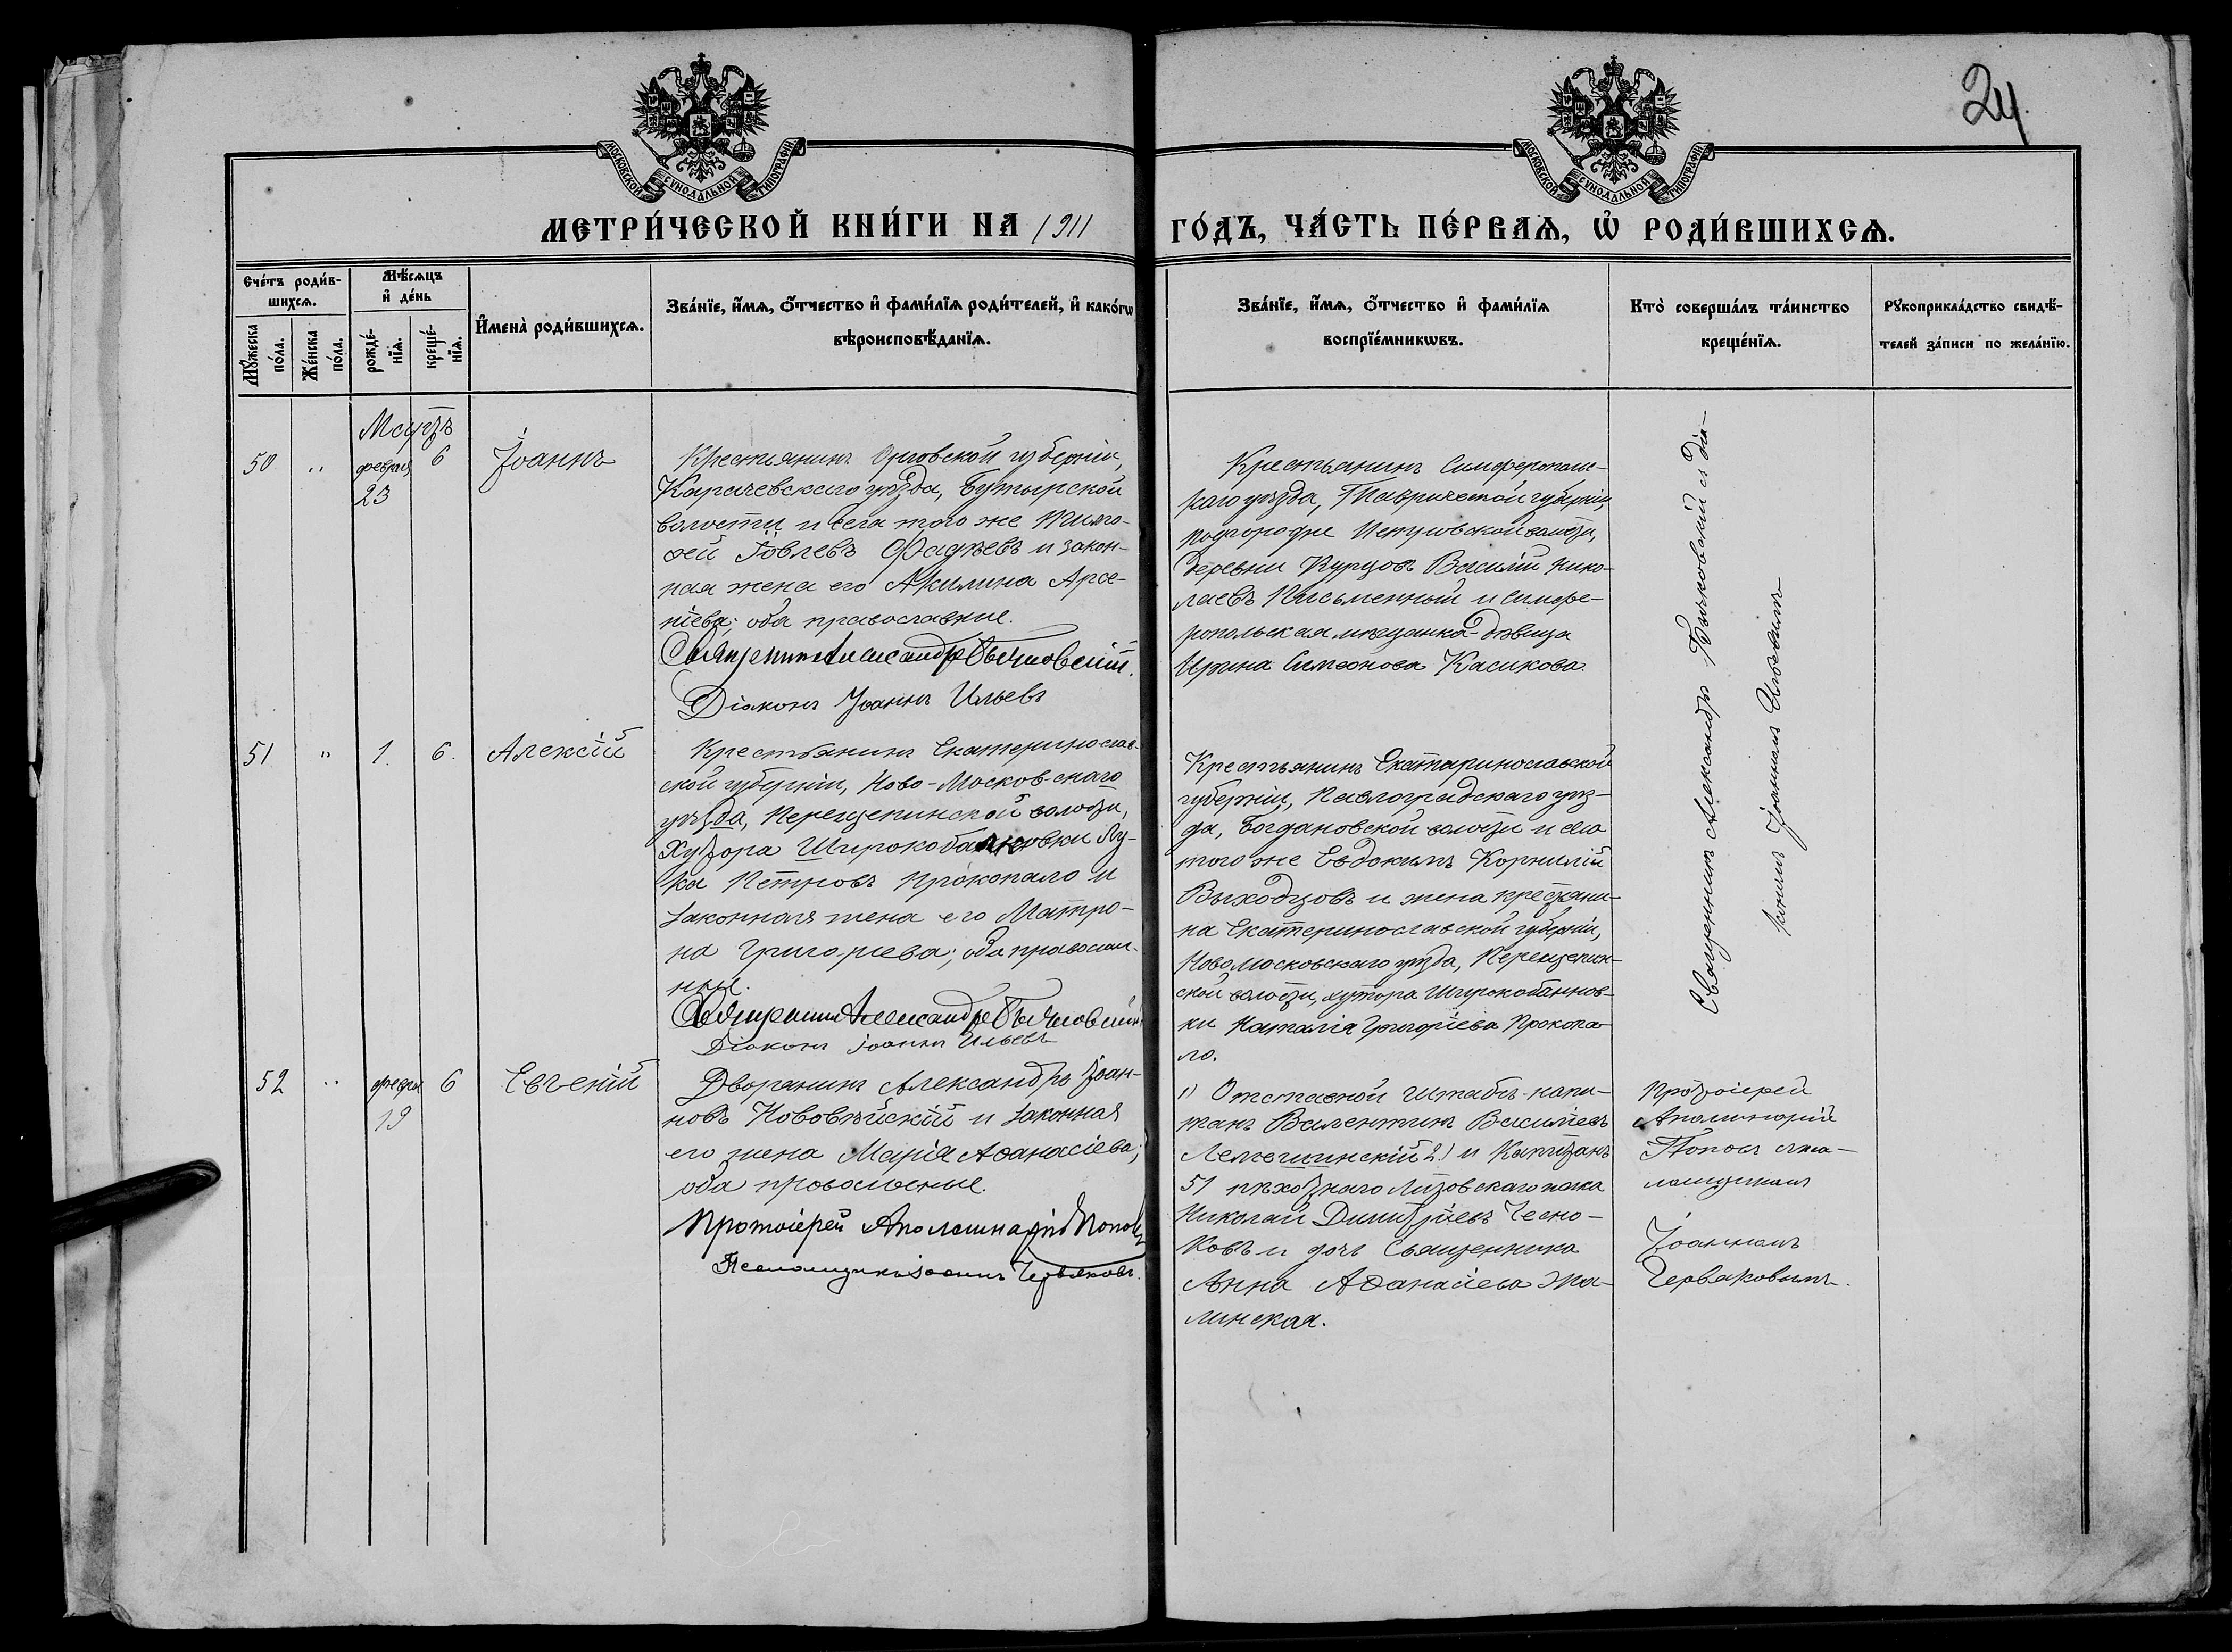 24
МОСКОВСКОЙ СѴНОДАЛЬНОЙ ТИПОГРАФІИ
МОСКОВСКОЙ СѴНОДАЛЬНОЙ ТИПОГРАФІИ
МЕТРИ́ЧЕСКОЙ КНИ́ГИ НА 1911 ГО́ДЪ, ЧА́СТЬ ПЕ́РВАѦ, Ѡ҆ РОДИ́ВШИХСѦ.
Сче́тъ роди́в-
шихсѧ.
Мꙋ́жеска
по́ла.
Же́нска
по́ла.
Мѣ́сѧцъ
и҆ де́нь
рожде́-
нїѧ.
креще́-
нїѧ.
И҆мена̀ роди́вшихсѧ.
Зва́нїе, и҆́мѧ, ѻ҆́тчество и҆ фами́лїѧ роди́телей, и҆ како́гѡ
вѣроисповѣ́данїѧ.
Зва́нїе, и҆́мѧ, ѻ҆́тчество и҆ фами́лїѧ
воспрїе́мникѡвъ.
Кто̀ соверша́лъ та́инство
креще́нїѧ.
Рꙋкоприкла́дство свидѣ́-
телей за́писи по жела́нїю.
Мартъ
50 " февраля 6 Іоаннъ
23
Крестьянинъ Орловской губерніи,
Карачевскаго уѣзда, Бутырской
волости и села того же Тимо-
ѳей Іовлевъ Фадѣевъ и закон-
ная жена его Акилина Арсе-
ніева; оба православные.
Священникъ Александръ Бычковскій.
Діаконъ Іоаннъ Ильевъ
Крестьянинъ Симферополь-
скаго уѣзда, Таврической губерніи,
подгородне волости,
деревни Курцовъ Василій Нико-
лаевъ Письменный и Симфе-
ропольская мѣщанка-дѣвица
Ирина Симеонова Касикова.
Священникъ Александръ Бычковскій съ діа-
кономъ Іоанномъ Ильевымъ
51 " 1. 6. Алексій
Крестьянинъ Екатеринослав-
ской губерніи, Ново-Московскаго
уѣзда, Перещепинской волости,
хутора Широкобалковки Лу-
ка Петровъ Прокопало и
законная жена его Матро-
на Григорьева; оба православ-
ные.
Священникъ Александръ Бычковскій
Діаконъ Іоаннъ Ильевъ
Крестьянинъ Екатеринославской
губерніи, Павлоградскаго уѣз-
да, Богдановской волости и села
того же Евдокимъ Корнилій
Выходцовъ и жена крестьяни-
на Екатеринославской губерніи,
Новомосковскаго уѣзда, Перещепин-
ской волости, хутора Широкобалков-
ки Наталія Григоріева Прокопа-
ло.
52 " февра 6 Евгеній
19
Дворянинъ Александръ Іоан-
новъ Нововѣйскій и законная
его жена Марія Аѳанасіева;
оба православные.
Протоіерей Аполлинарій Поповъ
Псаломщикъ Іоаннъ Червяковъ.
1) Отставной Штабсъ-капи-
танъ Валентинъ Василіевъ
2) и Капитанъ
51 пѣхотнаго Литовскаго полка
Николай Димитріевъ Чесно-
ковъ и дочь Священника
Анна Аѳанасіева
линская.
Протоіерей
Аполинарій
Поповъ съ пса-
ломщикомъ
Іоанномъ
Червяковымъ.